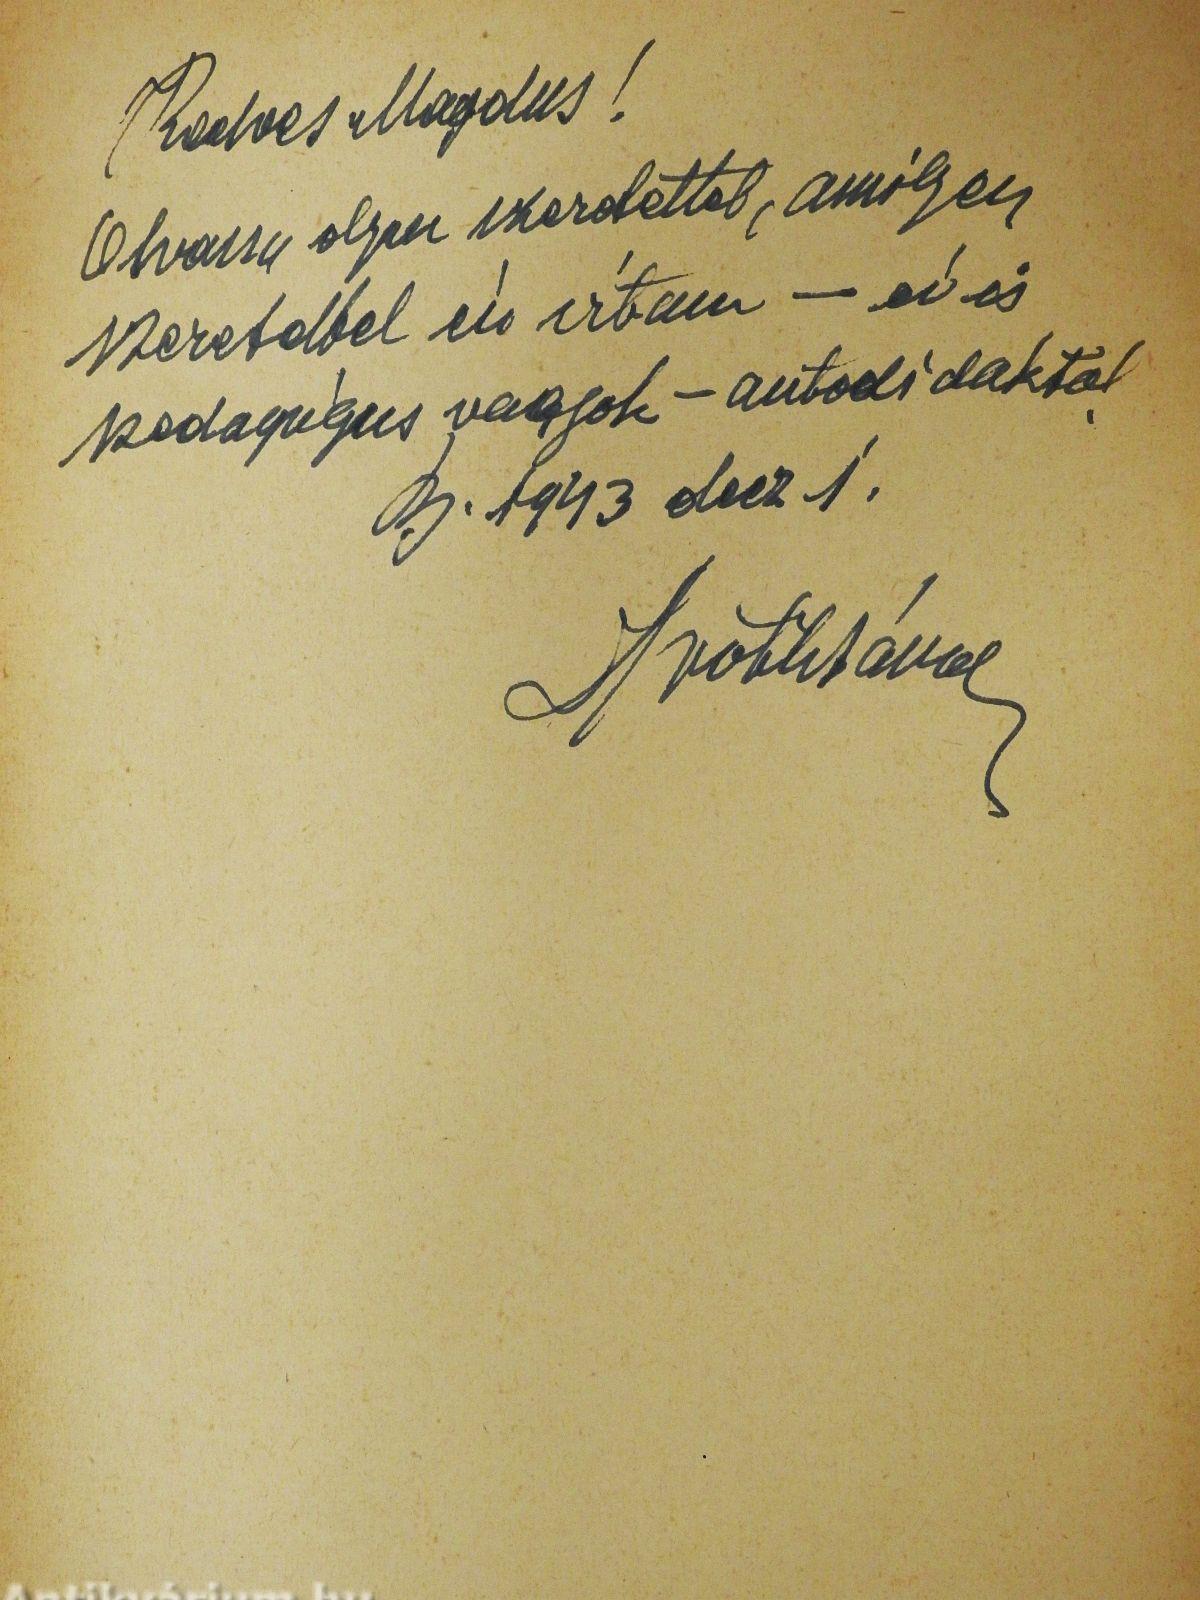 Kedves Magdus!
Olvassa olyan szeretettel, amilyen
szeretettel én írtam – én is
pedagógus vagyok – autodidakta!
B. 1943 dec 1.
Antikvárium.hu